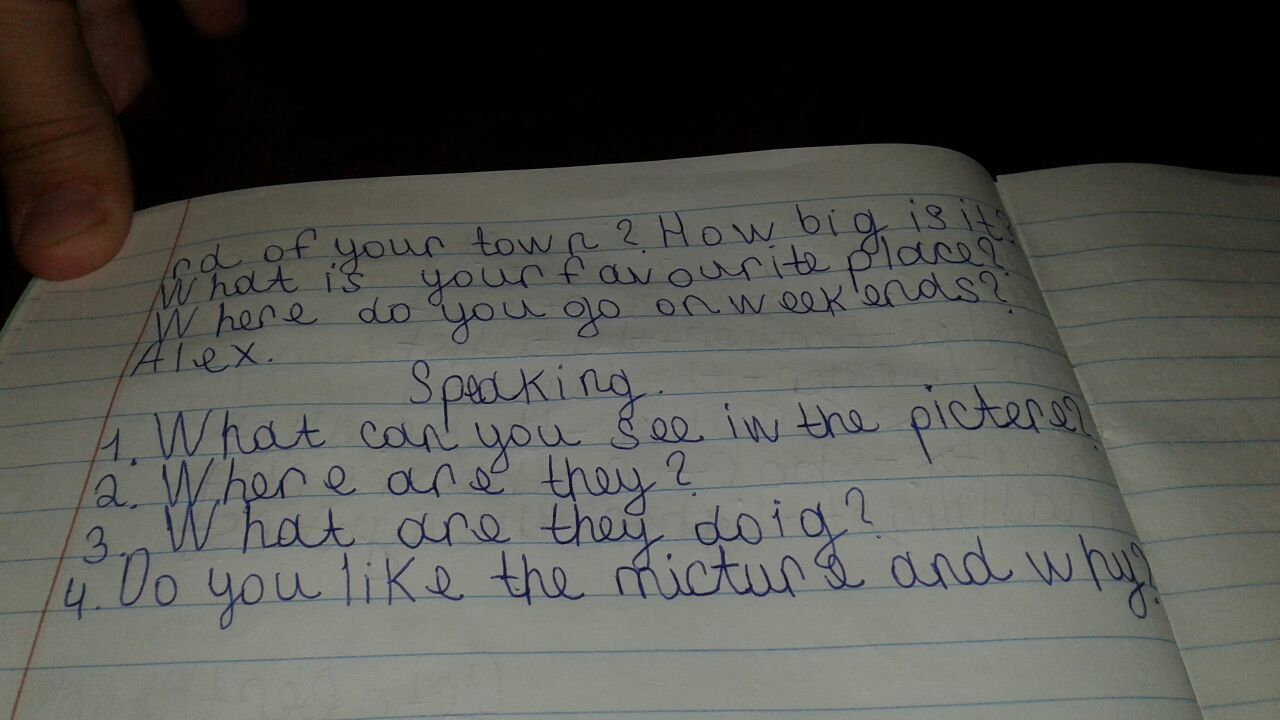 nd of your town? How big is it?
What is your favourite place?
Where do you go on weekends?
Alex.
Speaking.
1. What can you see in the pictere?
2. Where are they?
3. What are they doig?
4. Do you like the micture and why?